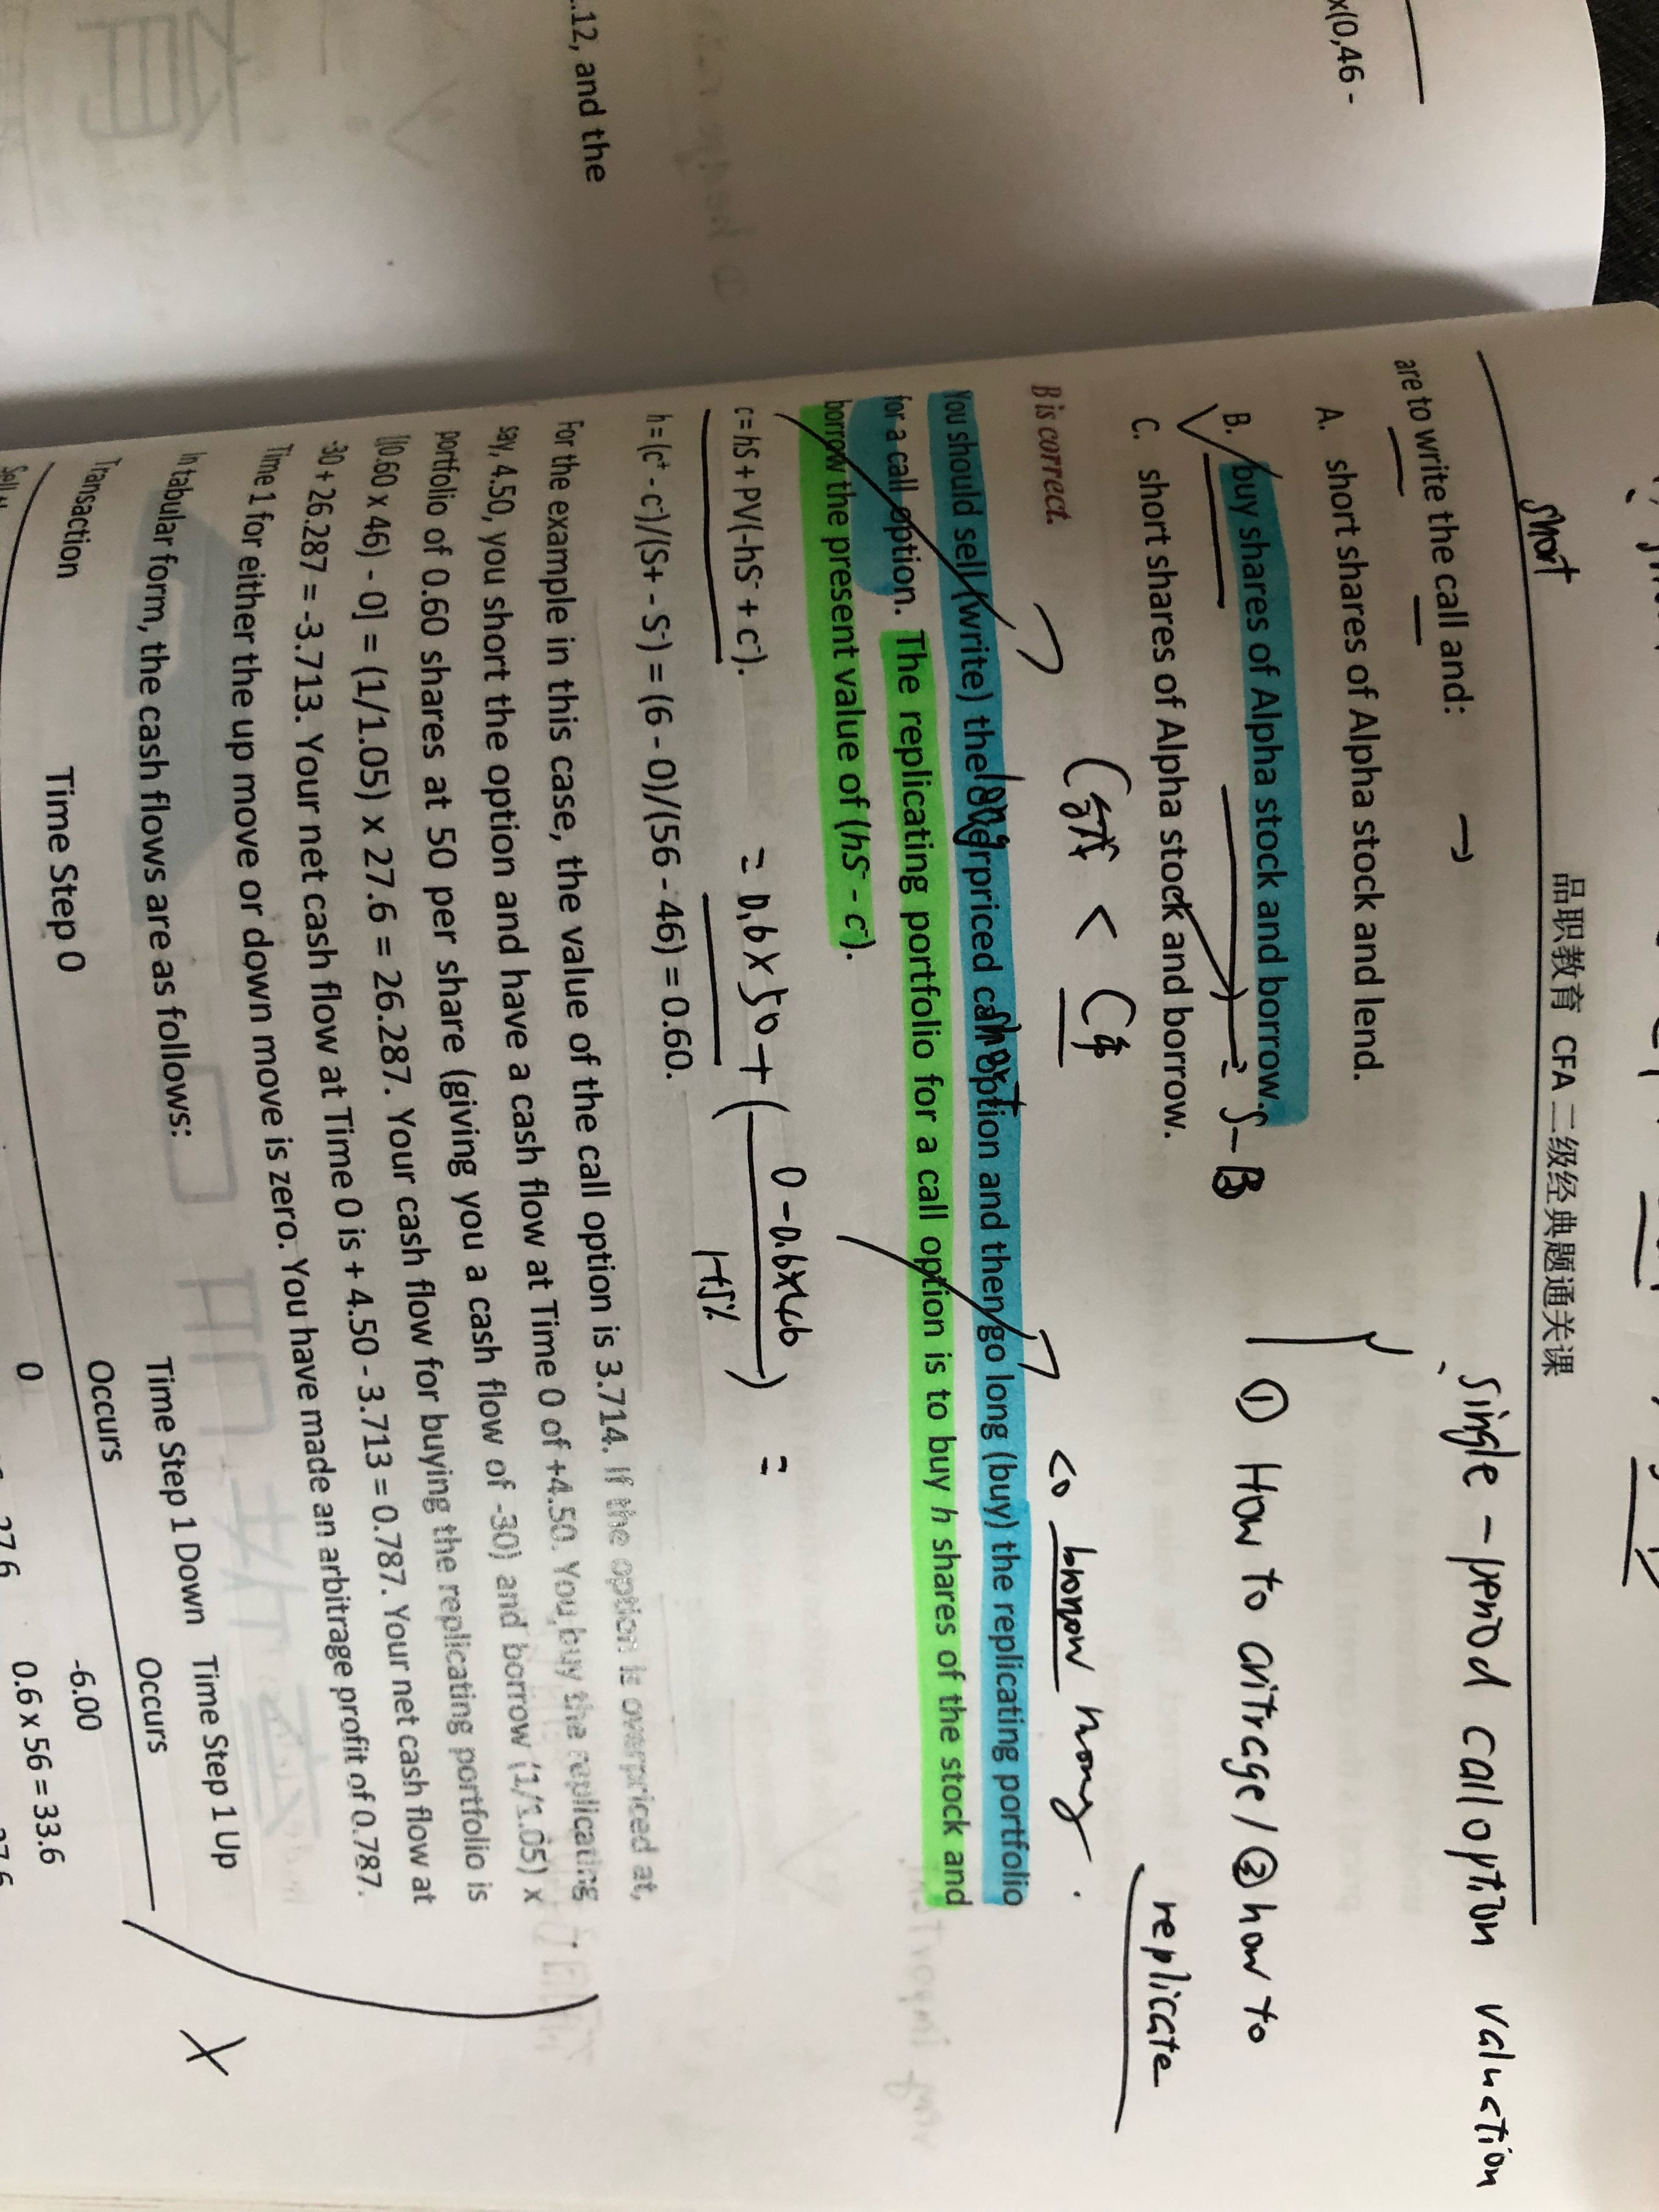 x(0,46 -
.12, and the
品职教育 CFA 二级经典题通关课
short
single-period call option valuation
are to write the call and:
A. short shares of Alpha stock and lend.
B. buy shares of Alpha stock and borrow.
= S-B
① How to aritrage/②how to
replicate
C. short shares of Alpha stock and borrow.
<0 borrow money.
B is correct.
You should sell (write) the overpriced call option and then go long (buy) the replicating portfolio
long
short
for a call option. The replicating portfolio for a call option is to buy h shares of the stock and
borrow the present value of (hS⁻ - c⁻).
c = hS + PV(-hS⁻ + c⁻).
= 0.6×50 + ( 0-0.6×46 / 1+5% ) =
h = (c⁺ - c⁻)/(S+ - S⁻) = (6 - 0)/(56 - 46) = 0.60.
For the example in this case, the value of the call option is 3.714. If the option is overpriced at,
say, 4.50, you short the option and have a cash flow at Time 0 of +4.50. You buy the replicating
portfolio of 0.60 shares at 50 per share (giving you a cash flow of -30) and borrow (1/1.05) x
[(0.60 x 46) - 0] = (1/1.05) x 27.6 = 26.287. Your cash flow for buying the replicating portfolio is
-30 + 26.287 = -3.713. Your net cash flow at Time 0 is + 4.50 - 3.713 = 0.787. Your net cash flow at
Time 1 for either the up move or down move is zero. You have made an arbitrage profit of 0.787.
In tabular form, the cash flows are as follows:
Transaction Time Step 0 Time Step 1 Down Occurs Time Step 1 Up Occurs
0 -6.00
27.6 0.6 x 56 = 33.6